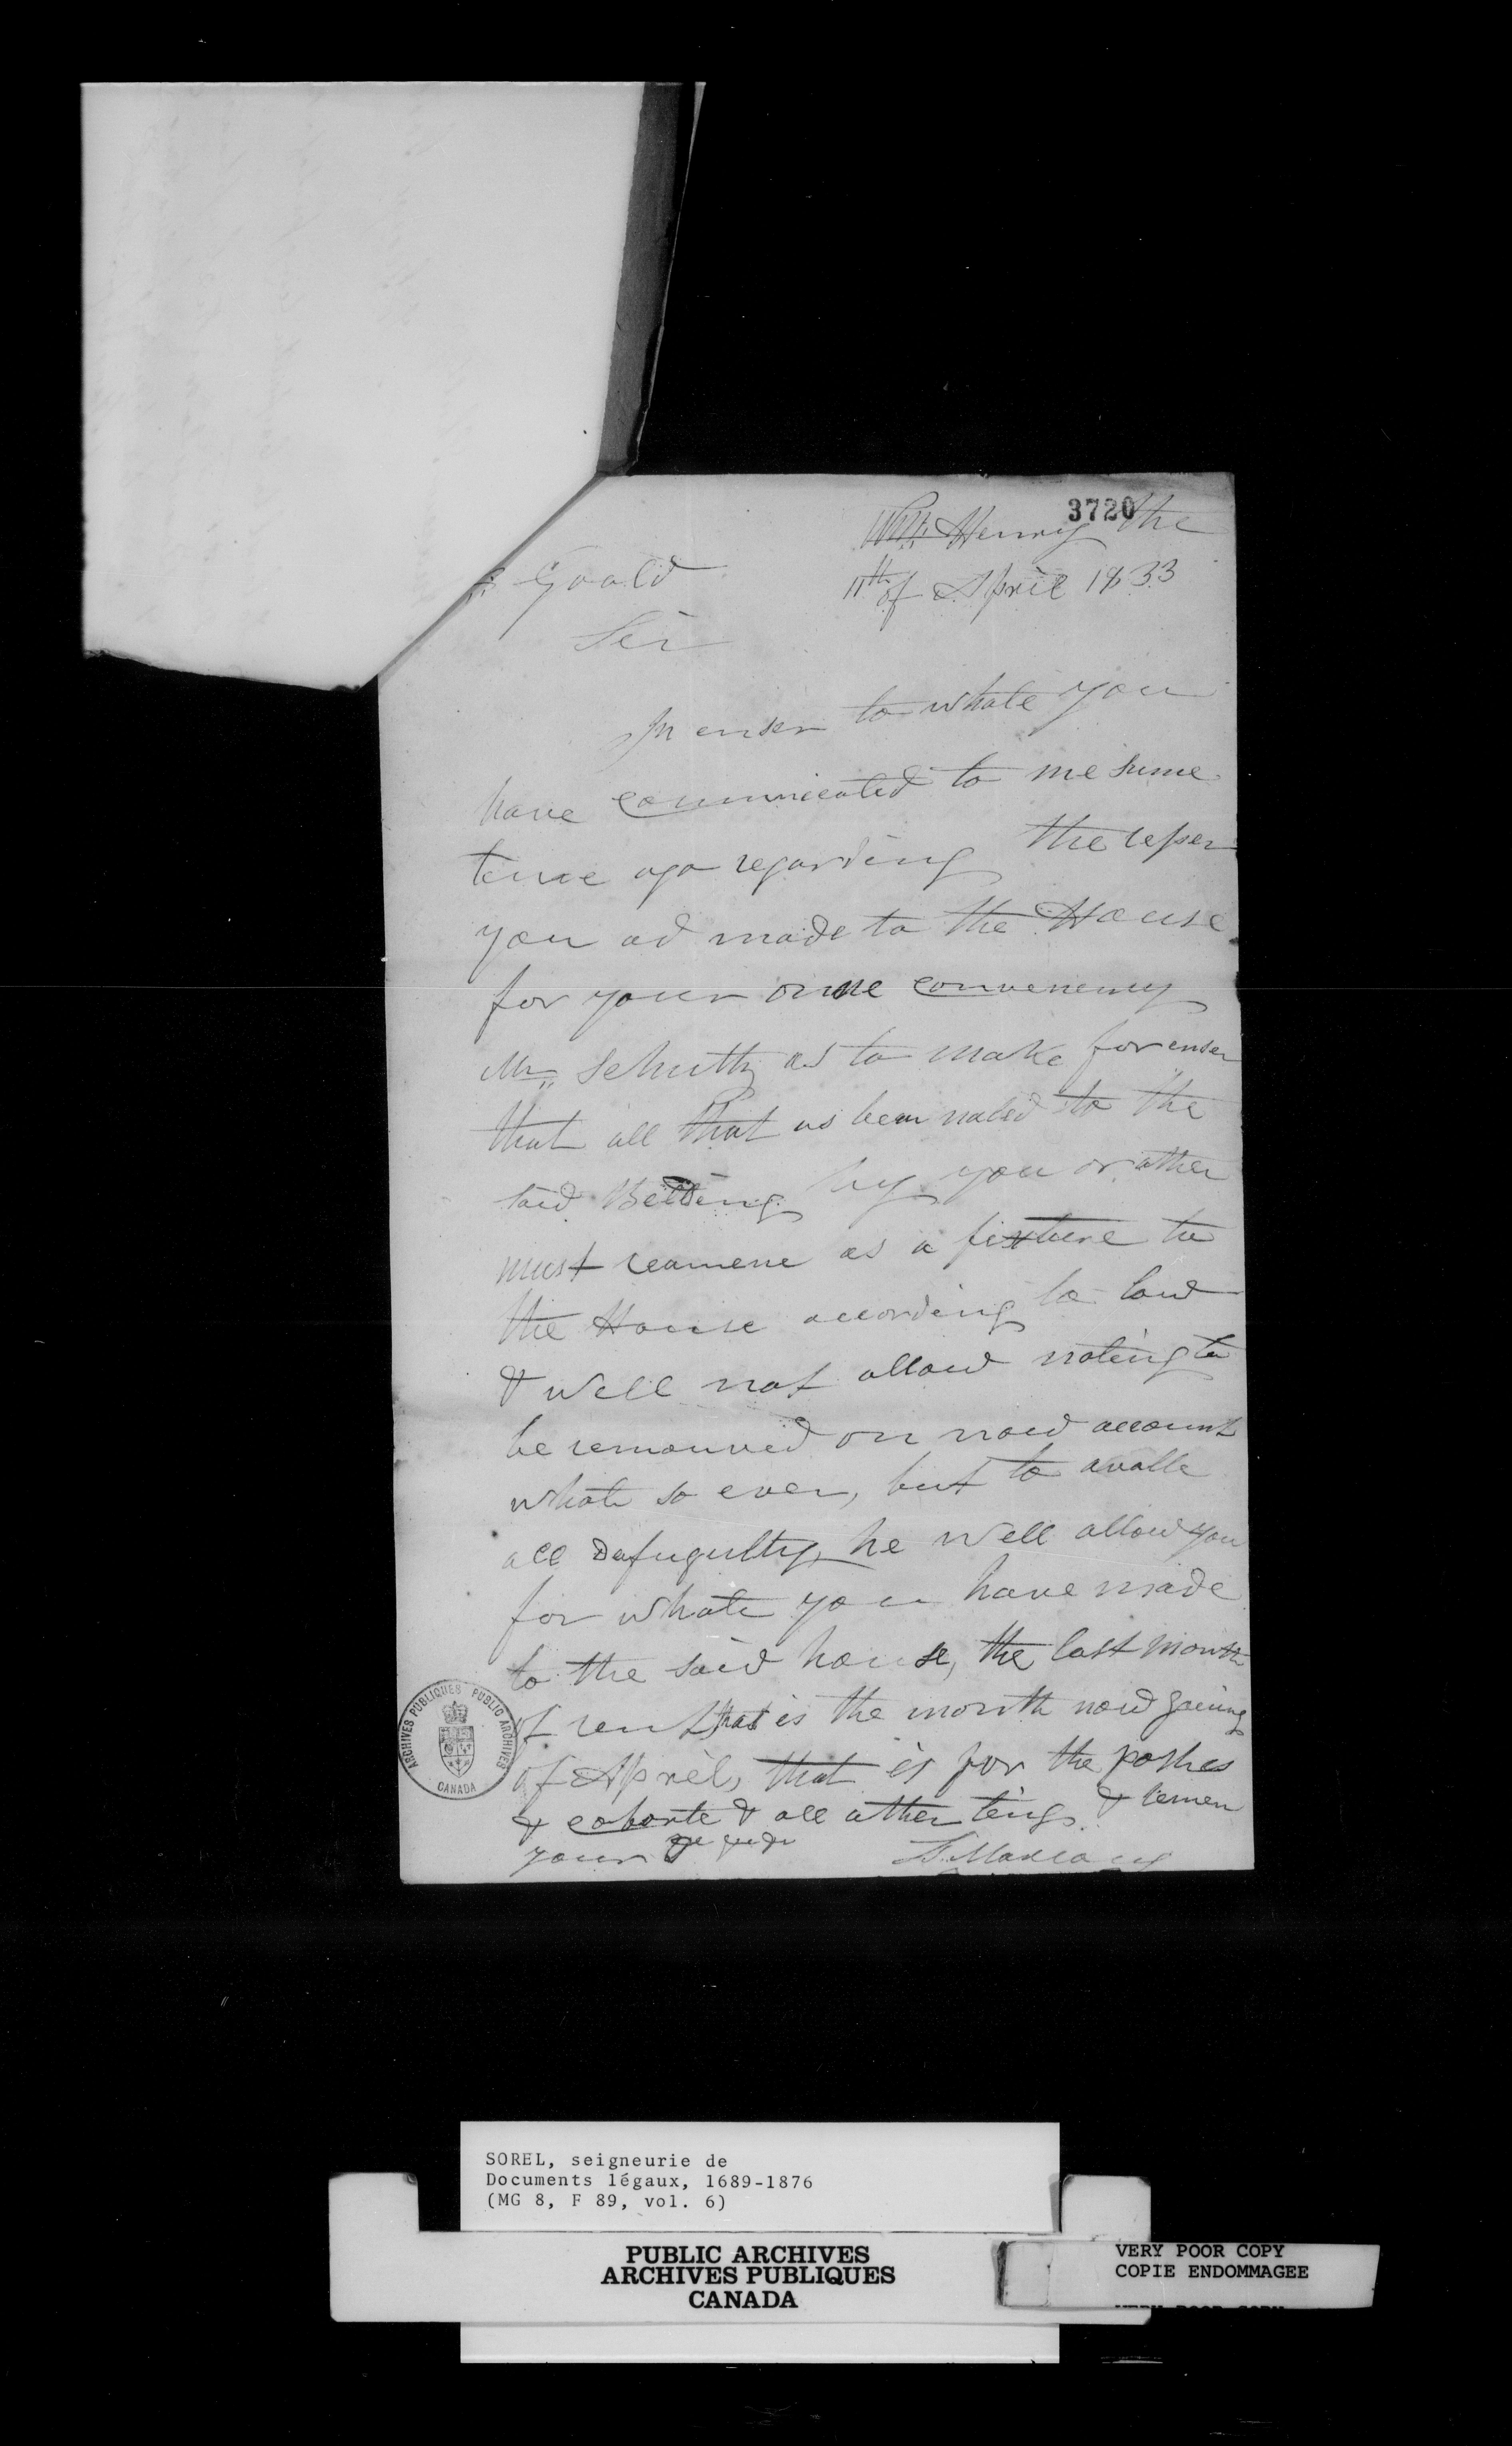 3720
Wm Henry the
11th of April 1833
Goald
Sir
In enser to whate you
have comunicated to me sume
time ago regarding the reper
you ad made to the House
for your owne convenency
Mr Schultz as to make for enser
that all that as bean naled to the
said Belding by you or other
must reamene as a fixture to
the House according to law
& well not allow noting to
be remouved on now account
whate so ever, but to
all he well allow you
for whate you have made
to the said house, the last month
of rent that is the month now going
of April, that is for the
& & all other tings &
your
ARCHIVES PUBLIQUES PUBLIC ARCHIVES
CANADA
SOREL, seigneurie de
Documents légaux, 1689-1876
(MG 8, F 89, vol. 6)
PUBLIC ARCHIVES
ARCHIVES PUBLIQUES
CANADA
VERY POOR COPY
COPIE ENDOMMAGEE
VERY POOR COPY